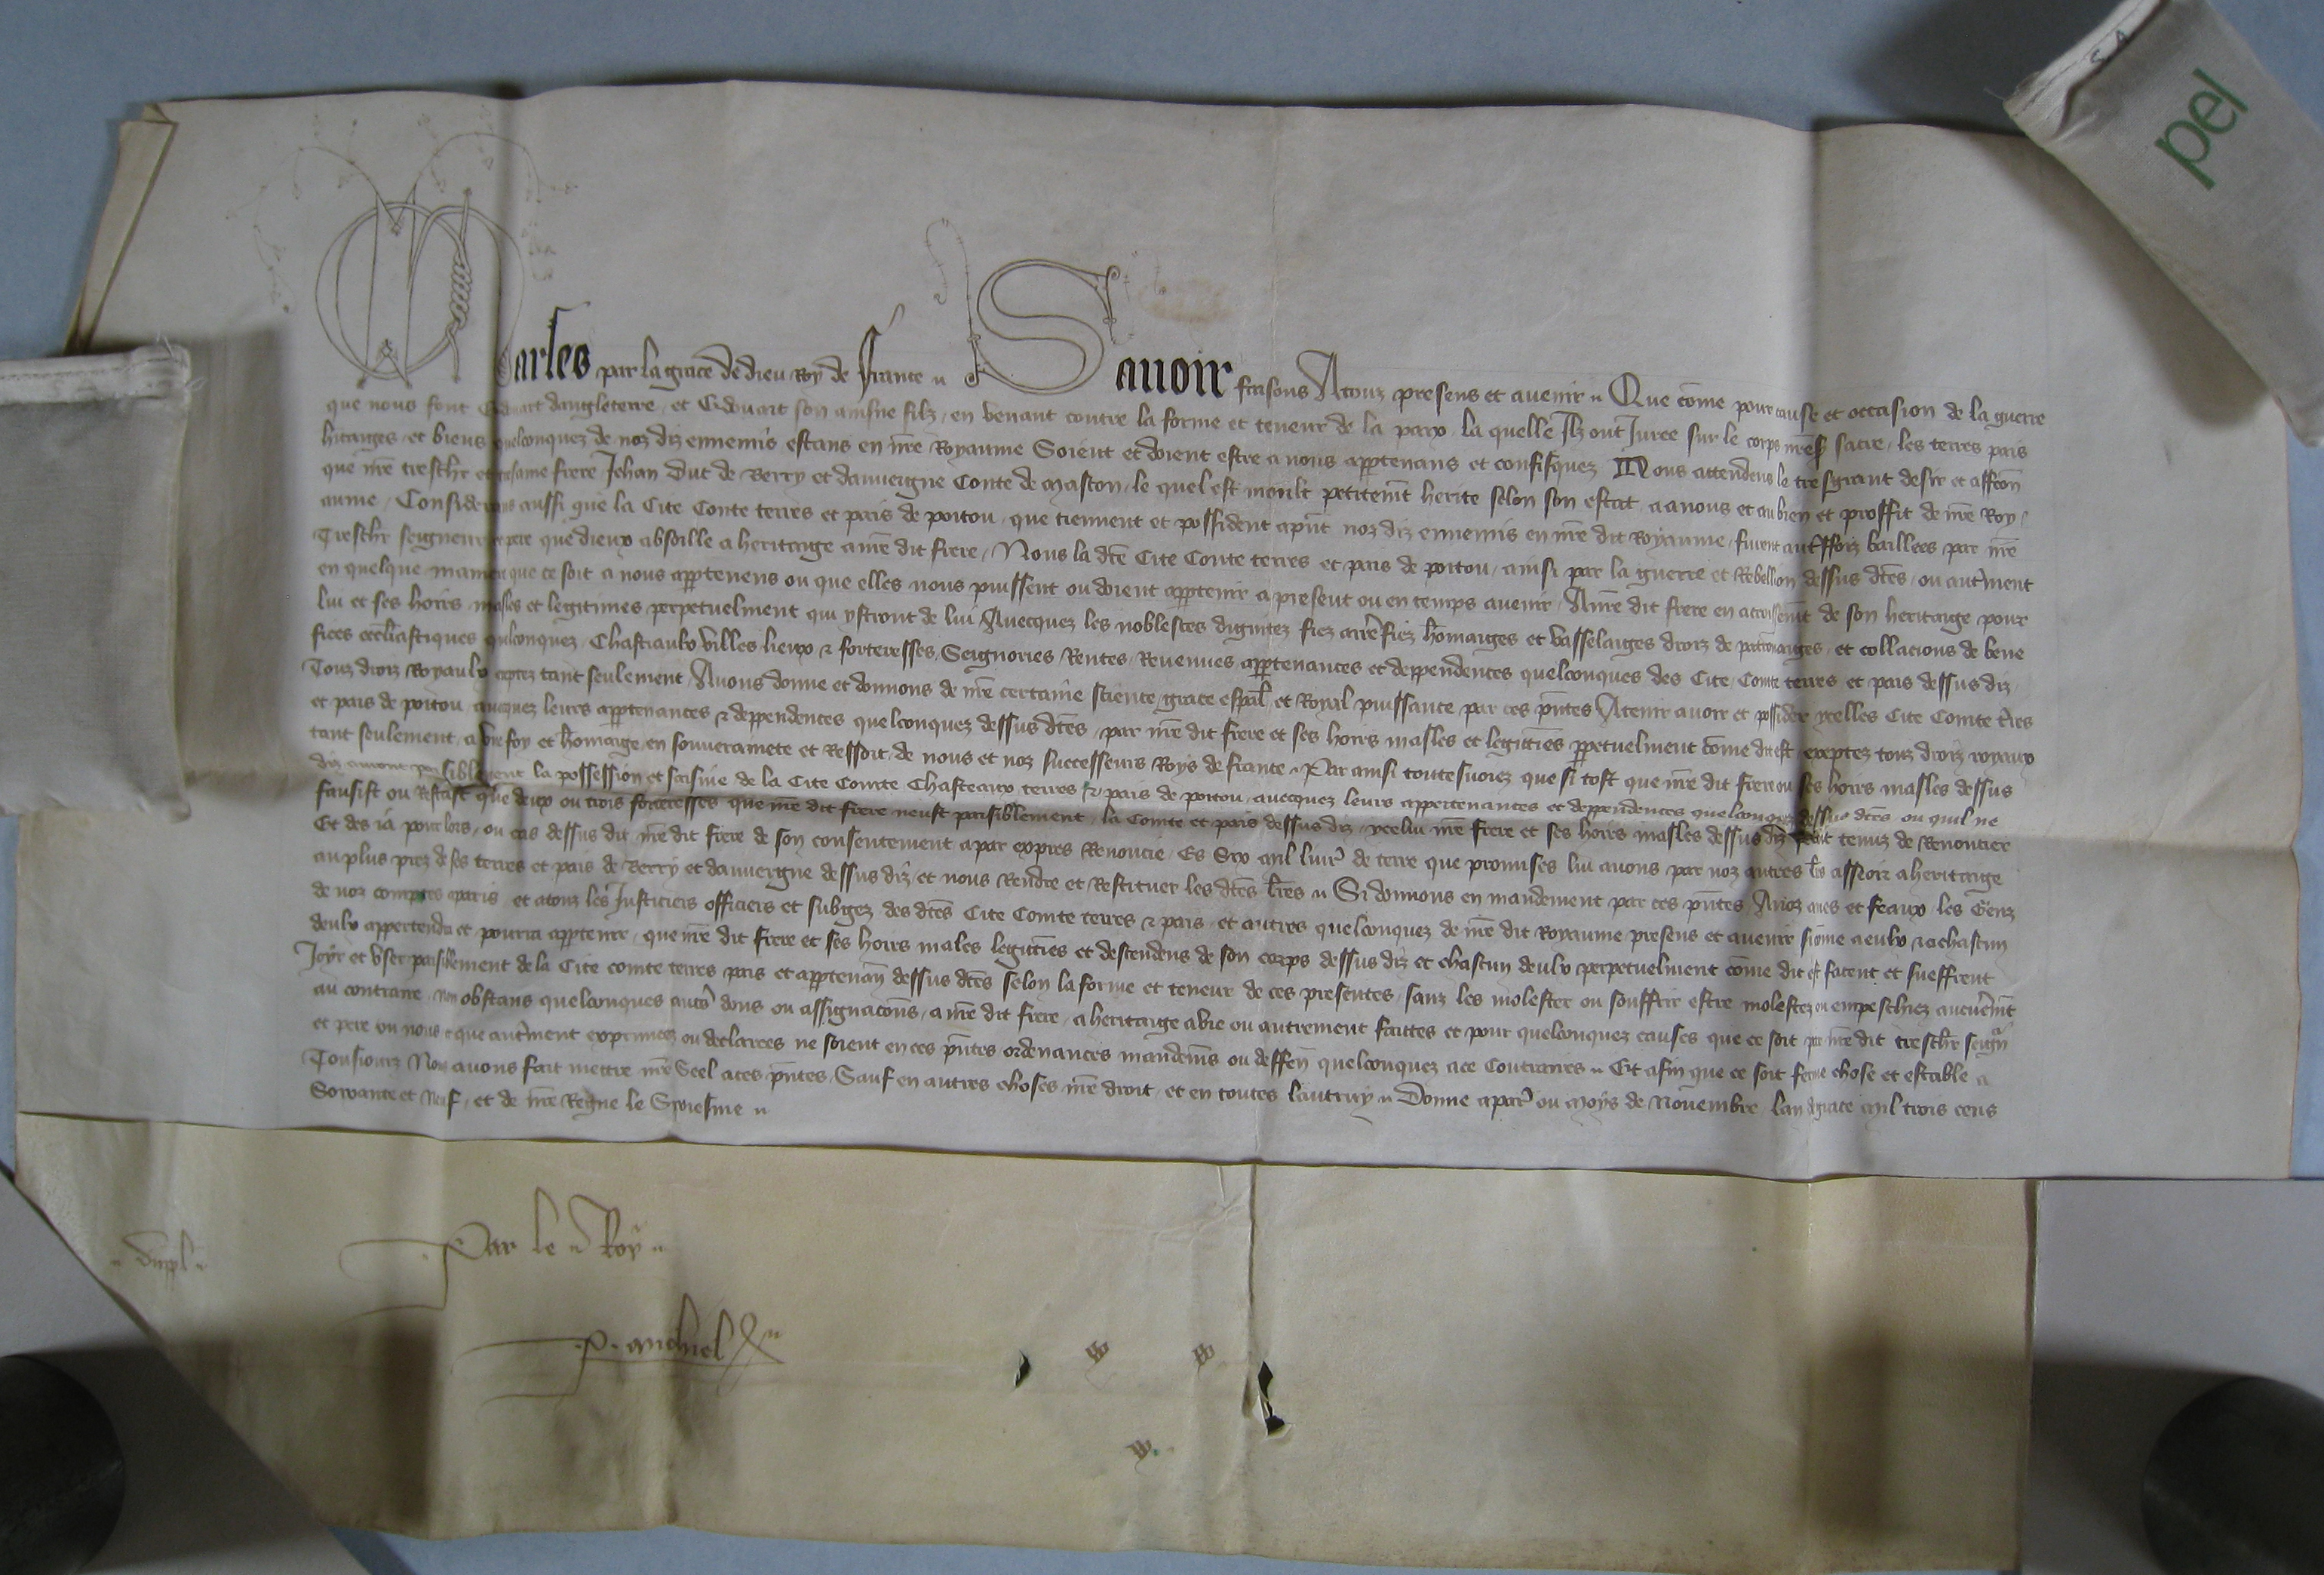 Charles par la grace de dieu Roy de France Sauoir faisons Atouz presens et auenir Que cōme pour cause et occasion de la guerre
que nous font Edouart dangleterre et Edouart son ainsne filz en venant contre la forme et teneur de la paix la quelle Ilz ont Juree sur le corps nr̄e sacre les terres pais
hitaiges et biens quelconquez de noz diz ennemis estans en nr̄e Royaume Soient et doient estre a nous appartenans et confisquez Nous attendens le tresgrant desir et affcōn
que nr̄e treschr et tresame frere Jehan Duc de Berry et dauuergne Conte de mascon le quel est moult petitemt herite selon son estat a a nous et au bien et proffit de nr̄e Roy
aume Considerans aussi que la Cite Conte terres et pais de poitou que tiennent et possident apn̄t noz diz ennemis en nr̄e dit Royaume furent autreffoiz baillees par nr̄e
Treschr seigneur et pere que dieux absoille a heritaige a nr̄e dit frere Nous la dc̄e Cite Conte terres et pais de poitou ainsi par la guerre et Rebellion dessus dc̄es ou autrement
en quelque maniere que ce soit a nous appartenens ou que elles nous puissent ou doient appartenir a present ou en temps auenir A nr̄e dit frere en accroissemt de son heritaige pour
lui et ses hoirs masles et legitimes perpetuelment qui ystront de lui Auecquez les noblesces dignitez fiez arrefiez hōmaiges et vasselaiges droiz de patronaiges et collacions de bene
fices eccliastiques qulconquez Chastiaulx villes lieux & forteresses Seignories Rentes Reuenues appartenances et deppendences quelconques des Cite Conte terres et pais dessus diz
Touz droiz Royaulx exceptez tant seulement Auons donne et donnons de nr̄e certaine science grace espāl et Royal puissance par ces pn̄tes Atenir auoir et possider ycelles Cite Conte tr̄es
et pais de poitou auecquez leurs appartenances & deppendences quelconquez dessus dc̄es par nr̄e dit frere et ses hoirs masles et legitīes perpetuelment cōme dit est exceptez touz droiz royaux
tant seulement a vne foy et hōmaige en souuerainete et Ressort de nous et noz successeurs Roys de france Par ainsi toutesuoiez que si tost que nr̄e dit frere ou ses hoirs masles dessus
diz auront paisiblement la possession et saisine de la Cite Conte Chasteaux terres & pais de poitou auecquez leurs appertenances et deppendences quelconquez dessus dc̄es ou quil ne
fausist ou Restast que deux ou trois forteresses que nr̄e dit frere neust paisiblement la Conte et pais dessus diz ycelui nr̄e frere et ses hoirs masles dessus diz seront tenuz de Renoncier
Et des ia pour lors ou cas dessus dit nr̄e dit frere de son consentement a par expres Renoncie Es Six mil liures de terre que promises lui auons par noz autres lr̄es asseoir a heritaige
au plus prez de ses terres et pais de Berry et dauuergne dessus diz et nous Rendre et Restituer les dc̄es lr̄es Si donnons en mandement par ces pn̄tes A noz ames et feaux les Genz
de noz comptes a paris et a touz les Justiciers officiers et subgez des dc̄es Cite Conte terres & pais et autres quelconquez de nr̄e dit Royaume presens et auenir si cōme a eulx & a chascun
deulx appertendra et pourra appartenir que nr̄e dit frere et ses hoirs males legitīes et descendens de son corps dessus diz et chascun deulx perpetuelment cōme dit est facent et sueffrent
Joyr et vser paisiblement de la Cite conte terres pais et appartenan̄ dessus dc̄es selon la forme et teneur de ces presentes sanz les molester ou souffrir estre molestez ou empeschiez aucunemt
au contraire non obstans quelconques autres dons ou assignacōns a nr̄e dit frere a heritaige a vie ou autrement faittes et pour quelconquez causes que ce soit par nr̄e dit treschr seigneur
et pere ou nous et que autrement exprimees ou declarees ne soient en ces pn̄tes ordenances mandemēs ou deffen̄ quelconquez a ce Contraires Et afin que ce soit ferme chose et estable a
Tousiourz Nous auons fait mettre nr̄e Seel a ces pn̄tes Sauf en autres choses nr̄e droit et en toutes lautruy Donne a paris ou moys de Nouembre lan de grace mil trois cens
Soixante et Neuf et de nr̄e Regne le Sixiesme
dupl
Par le Roy
P. michiel
pel